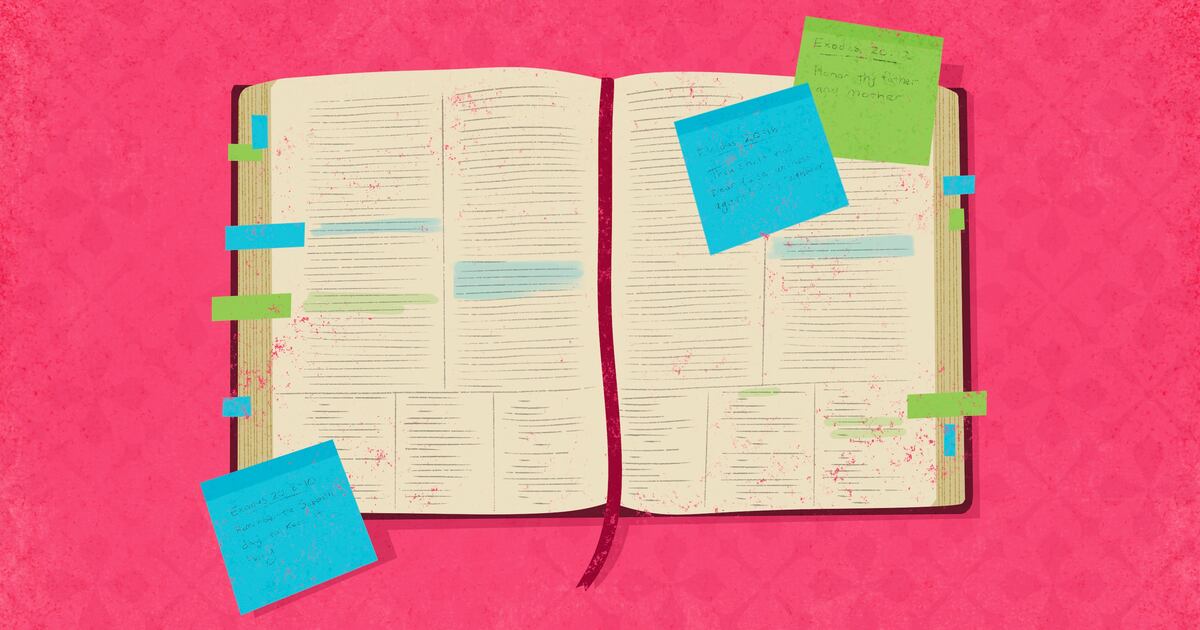 Exodus 20:12
Honor thy father
and mother
Exodus 20:16
Thou shalt not
bear false witness
against neighbor
Exodus 20:8-10
Remember the Sabbath
day to Keep it
holy